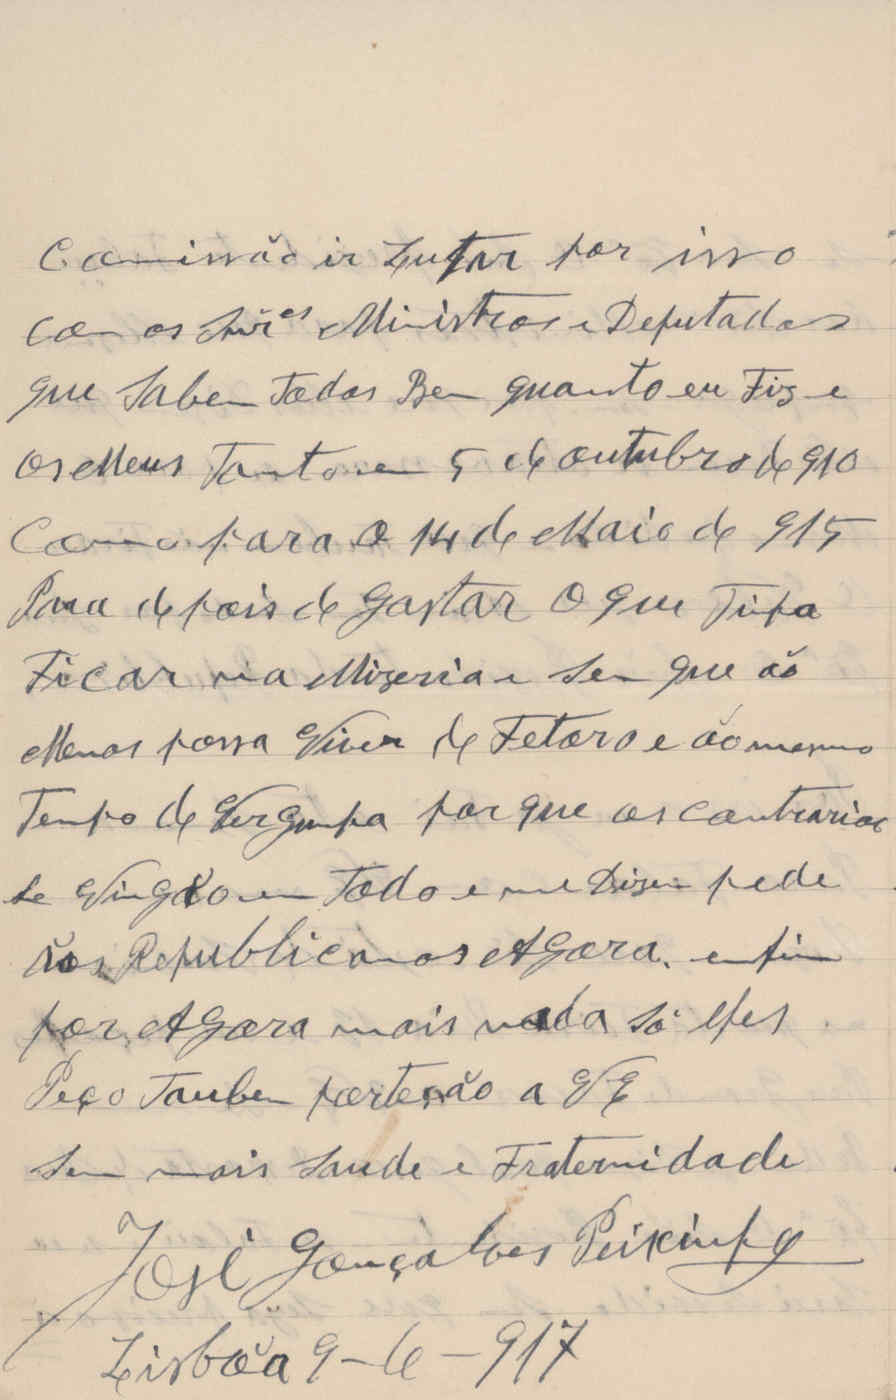 Comissão ir Lutar por isso
com os Snr.es Ministros e Deputados
que Saben Todos Ben quanto eu Fiz e
os Meus Tanto en 5 de outubro de 910
Como para O 14 de Maio de 915
Para depois de Gastar O que Tinha
Ficar na Mizeria e Sen que ao
Menos possa Viver de e ao mesmo
Tenpo de Vergunha por que os contrarios
se Vingão en Todo e me Dizen pede
aos Republicanos Agora. enfin
por Agora mais nada só lhes
Peço Tanben porteção a VE
Sen mais Saude e Fraternidade
José Gonçalves Peixinho
Lisbôa 9-6-917